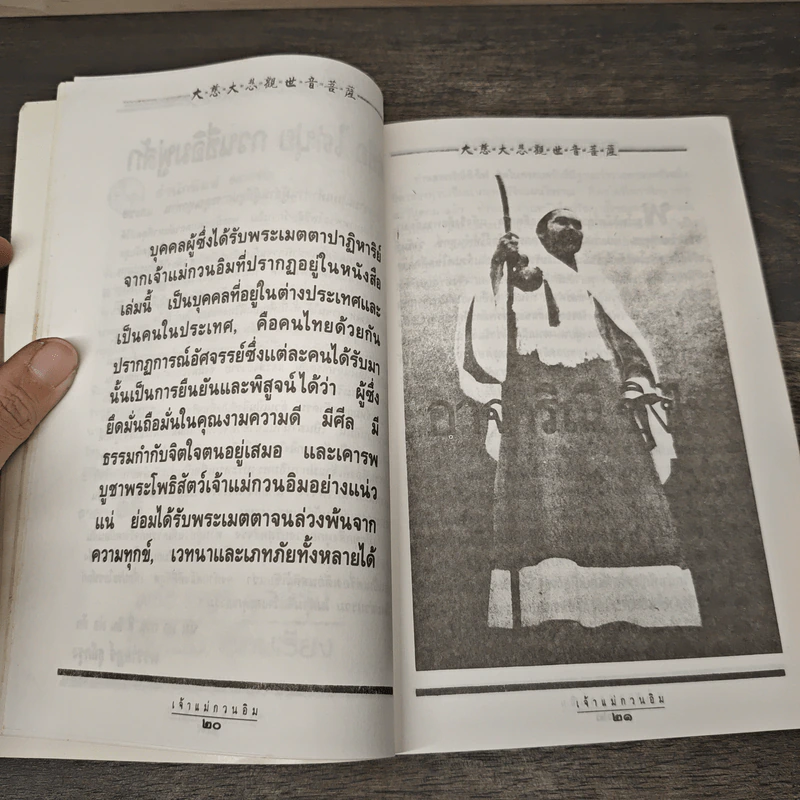 大·慈·大·悲·觀·世·音·菩·薩
บุคคลผู้ซึ่งได้รับพระเมตตาปาฏิหาริย์
จากเจ้าแม่กวนอิมที่ปรากฏอยู่ในหนังสือ
เล่มนี้ เป็นบุคคลที่อยู่ในต่างประเทศและ
เป็นคนในประเทศ, คือคนไทยด้วยกัน
ปรากฏการณ์อัศจรรย์ซึ่งแต่ละคนได้รับมา
นั้นเป็นการยืนยันและพิสูจน์ได้ว่า ผู้ซึ่ง
ยึดมั่นถือมั่นในคุณงามความดี มีศีล มี
ธรรมกำกับจิตใจตนอยู่เสมอ และเคารพ
บูชาพระโพธิสัตว์เจ้าแม่กวนอิมอย่างแน่ว
แน่ ย่อมได้รับพระเมตตาจนล่วงพ้นจาก
ความทุกข์, เวทนาและเภทภัยทั้งหลายได้
เจ้าแม่กวนอิม
๒๐
大·慈·大·悲·觀·世·音·菩·薩
เจ้าแม่กวนอิม
๒๑